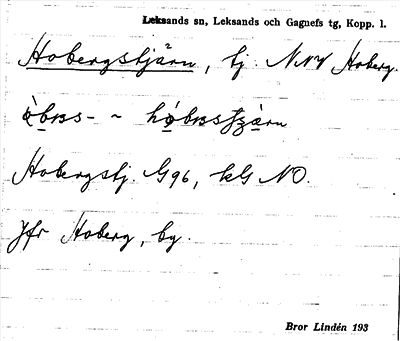 Leksands sn, Leksands och Gagnefs tg, Kopp. l.
Hobergstjärn, tj. NNV Hoberg.
òbᴎs- ~ hòbᴎsʃʒàrn
Hobergstj. G96, kG NO.
Jfr Hoberg, by.
Bror Lindén 193